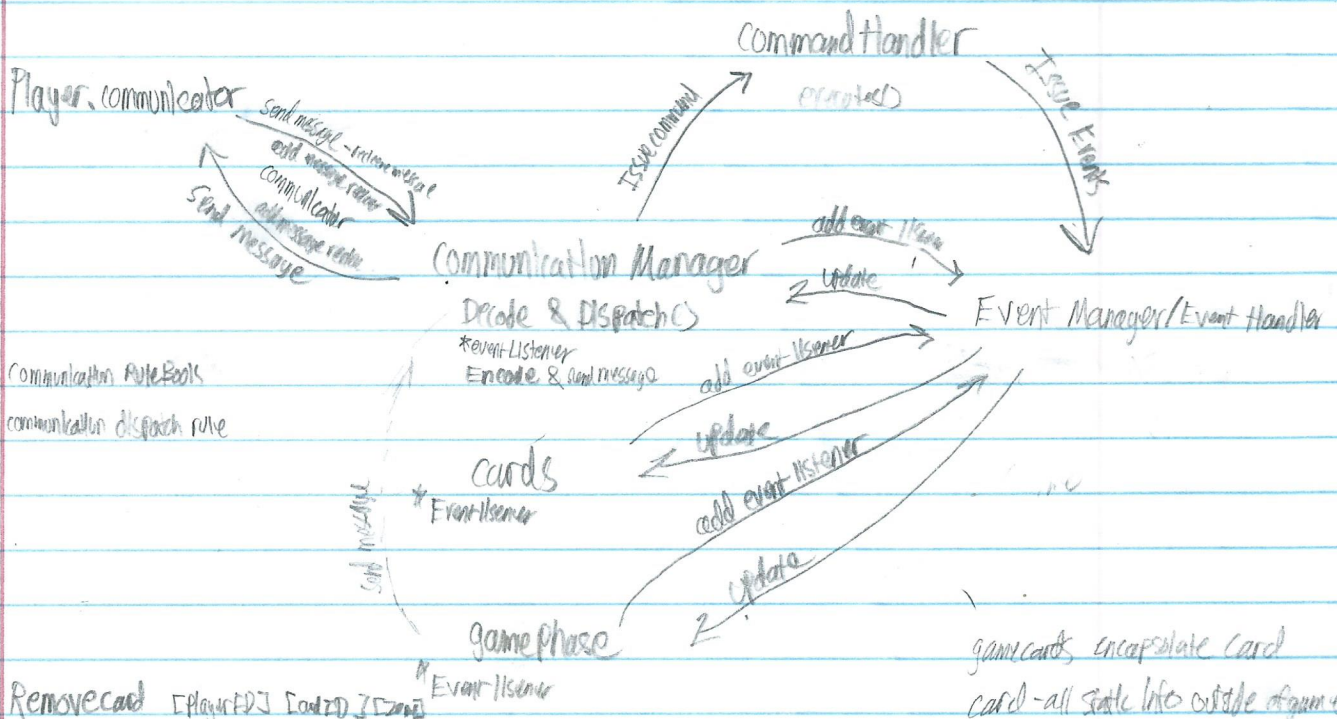 CommandHandler
execute()
Issue Events
Issue command
Player.communicator
send message - recieve message
add message reciever
communicator
add message reciever
Send message
Communication Manager
Decode & Dispatch()
*eventListener
Encode & send message
add event listener
update
Event Manager/Event Handler
Communication RuleBooks
communication dispatch rule
add event listener
update
cards
* Eventlisener
add event listener
update
send message
gamephase
* Eventlisener
gamecards encapsolate card
card - all static info outside of game
Removecard [PlayerID] [cardID] [Zone]